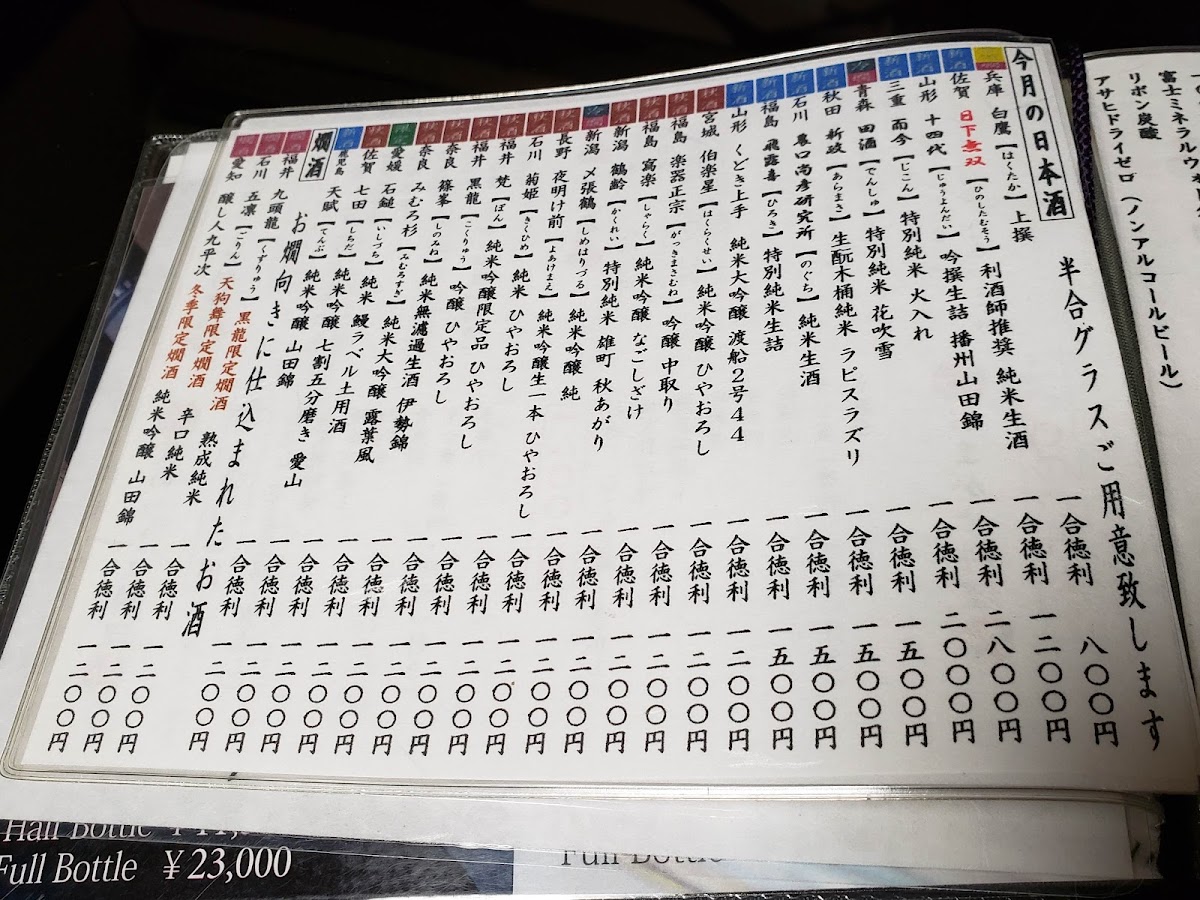 リボン炭酸
アサヒドライゼロ（ノンアルコールビール）
半合グラスご用意致します
今月の日本酒
兵庫 白鷹【はくたか】上撰 一合徳利 八〇〇円
新酒 佐賀 日下無双【ひのしたむそう】利酒師推奨 純米生酒 一合徳利 一二〇〇円
新酒 山形 十四代【じゅうよんだい】吟撰生詰 播州山田錦 一合徳利 二八〇〇円
新酒 三重 而今【じこん】特別純米 火入れ 一合徳利 二〇〇〇円
冷燗 青森 田酒【でんしゅ】特別純米 花吹雪 一合徳利 一五〇〇円
新酒 秋田 新政【あらまさ】生酛木桶純米 ラピスラズリ 一合徳利 一五〇〇円
新酒 石川 農口尚彦研究所【のぐち】純米生酒 一合徳利 一五〇〇円
新酒 福島 飛露喜【ひろき】特別純米生詰 一合徳利 一五〇〇円
新酒 山形 くどき上手 純米大吟醸 渡船２号４４ 一合徳利 一二〇〇円
秋酒 宮城 伯楽星【はくらくせい】純米吟醸 ひやおろし 一合徳利 一二〇〇円
秋酒 福島 楽器正宗【がっきまさむね】吟醸 中取り 一合徳利 一二〇〇円
秋酒 福島 寫楽【しゃらく】純米吟醸 なごしざけ 一合徳利 一二〇〇円
秋酒 新潟 鶴齢【かくれい】特別純米 雄町 秋あがり 一合徳利 一二〇〇円
冷燗 新潟 〆張鶴【しめはりづる】純米吟醸 純 一合徳利 一二〇〇円
秋酒 長野 夜明け前【よあけまえ】純米吟醸生一本 ひやおろし 一合徳利 一二〇〇円
秋酒 石川 菊姫【きくひめ】純米 ひやおろし 一合徳利 一二〇〇円
秋酒 福井 梵【ぼん】純米吟醸限定品 ひやおろし 一合徳利 一二〇〇円
秋酒 福井 黒龍【こくりゅう】吟醸 ひやおろし 一合徳利 一二〇〇円
秋酒 奈良 篠峯【しのみね】純米無濾過生酒 伊勢錦 一合徳利 一二〇〇円
秋酒 奈良 みむろ杉【みむろすぎ】純米大吟醸 露葉風 一合徳利 一二〇〇円
愛媛 石鎚【いしづち】純米 鰻ラベル土用酒 一合徳利 一二〇〇円
秋酒 佐賀 七田【しちだ】純米吟醸 七割五分磨き 愛山 一合徳利 一二〇〇円
新酒 鹿児島 天賦【てんぶ】純米吟醸 山田錦 一合徳利 一二〇〇円
燗酒 お燗向きに仕込まれたお酒
福井 九頭龍【くずりゅう】黒龍限定燗酒 熟成純米 一合徳利 一二〇〇円
石川 五凛【ごりん】天狗舞限定燗酒 辛口純米 一合徳利 一二〇〇円
愛知 醸し人九平次 冬季限定燗酒 純米吟醸 山田錦 一合徳利 一二〇〇円
Half Bottle
Full Bottle ￥23,000
Full Bottle